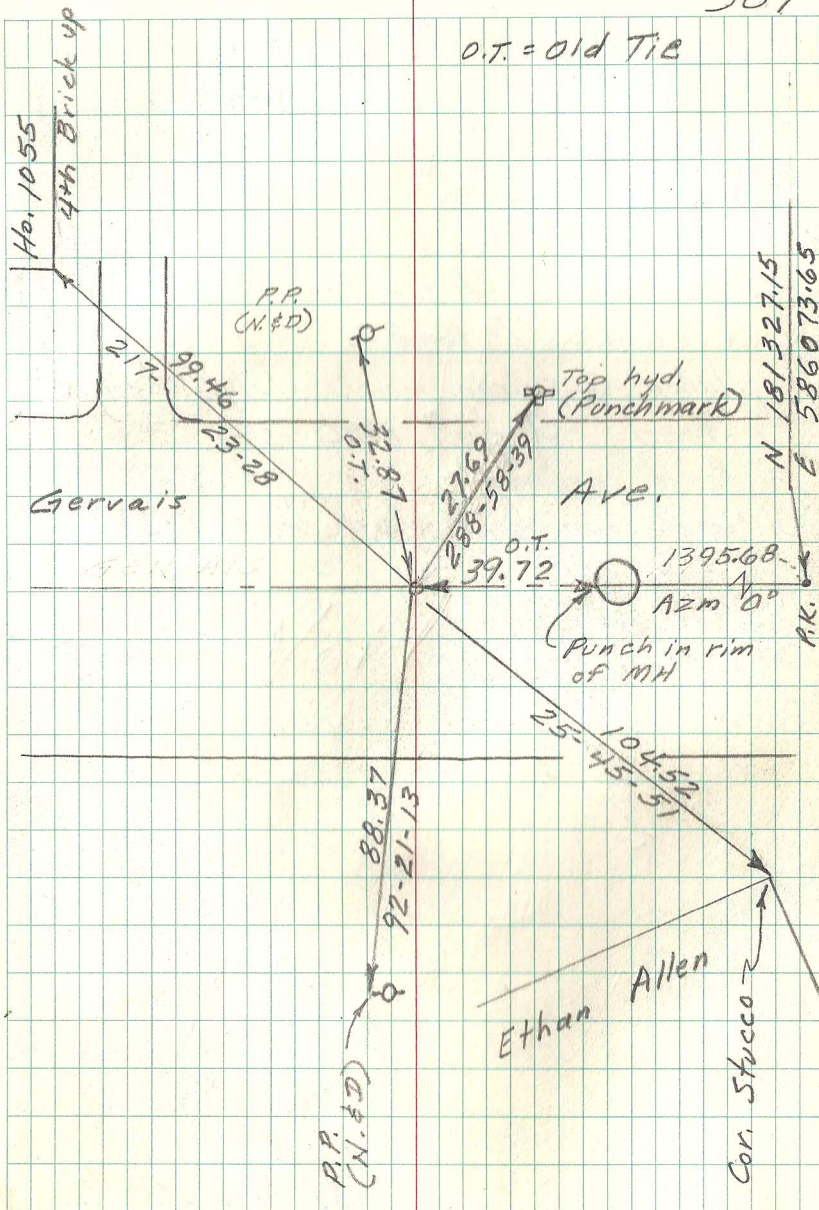 O.T. = Old Tie
Ho. 1055
4th Brick up
P.P.
(N.&D)
217-
99.46
23-28
32.87
O.T.
Top hyd.
(Punchmark)
27.69
288-58-39
N 181327.15
E 586073.65
Gervais
Ave.
O.T.
39.72
1395.68
Azm 0°
P.K.
Punch in rim
of MH
104.52
25-45-51
88.37
92-21-13
Ethan Allen
P.P.
(N.&D)
Cor. Stucco